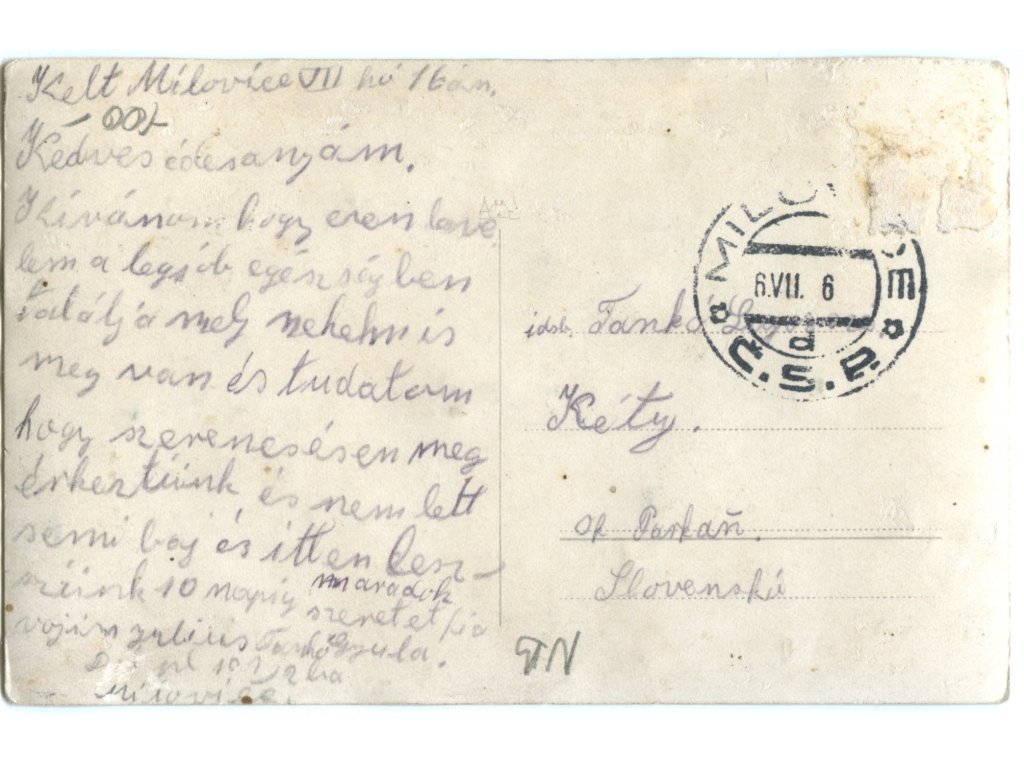 Kelt Milovice VII hó 16án.
Kedves édesanyám.
Kívánom hogy ezen leve
lem a legjob egésségben
találja mely nekehm is
meg van és tudatom
hogy szerencsésen meg
érkeztünk és nem lett
semi baj és itten lesz-
züink 10 napig maradok
szeretet fia
vojin Julius Tankó Gyula.
Milovice.
MILOVICE
6.VII. 6
d
Č.S.P.
idsb. Tankó
Kéty.
op Parkaň.
Slovenskó
TN